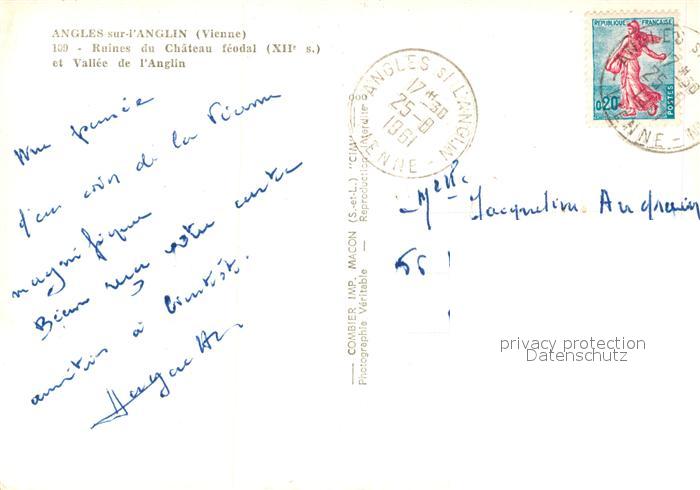 ANGLES-sur-l'ANGLIN (Vienne)
109 - Ruines du Château féodal (XIIe s.)
et Vallée de l'Anglin
Une pensée
d'un coin de la Vienne
magnifique
Bien reçu votre carte
amitiés à bientôt.
— COMBIER IMP. MACON (S.-et-L.) "CIM"
Photographie Véritable — Reproduction Interdite
ANGLES S/ L'ANGLIN
17 H -30
25-8
1961
VIENNE
REPUBLIQUE FRANÇAISE
0,20
POSTES
Melle Jacqueline
66
privacy protection
Datenschutz